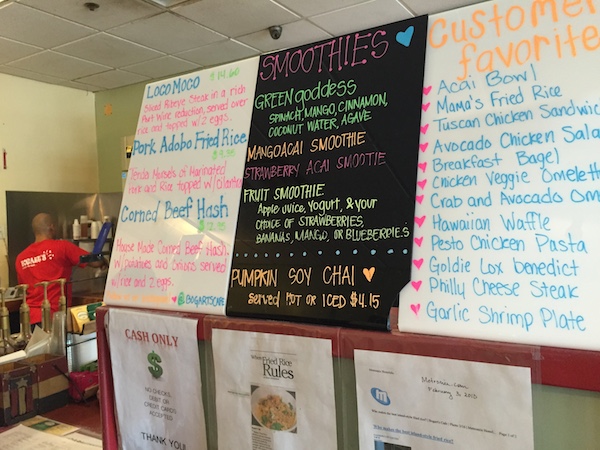 Loco Moco $14.60
Sliced Ribeye Steak in a rich
Port Wine reduction, served over
rice and topped w/ 2 eggs.
Pork Adobo Fried Rice
Tenda Morsels of Marinated
Pork and Rice topped w/ Cilantro
Corned Beef Hash
House Made Corned Beef Hash
w/ potatoes and onions served
w/ rice and 2 eggs.
@BOGARTSCAFE
SMOOTHIES
GREEN goddess
SPINACH, MANGO, CINNAMON,
COCONUT WATER, AGAVE
MANGOACAI SMOOTHIE
STRAWBERRY ACAI SMOOTIE
FRUIT SMOOTHIE
Apple Juice, Yogurt, & your
CHOICE OF STRAWBERRIES,
BANANAS, MANGO, OR BLUEBERRIES
PUMPKIN SOY CHAI
SERVED HOT OR ICED $4.15
Customer
favorite
Acai Bowl
Mama's Fried Rice
Tuscan Chicken Sandwic
Avocado Chicken Sala
Breakfast Bagel
Chicken Veggie Omelett
Crab and Avocado Om
Hawaiian Waffle
Pesto Chicken Pasta
Goldie Lox benedict
Philly Cheese Steak
Garlic Shrimp Plate
CASH ONLY
$
NO CHECKS,
DEBIT OR
CREDIT CARDS
ACCEPTED
THANK YOU
Fried Rice
Rules
February 3, 2015